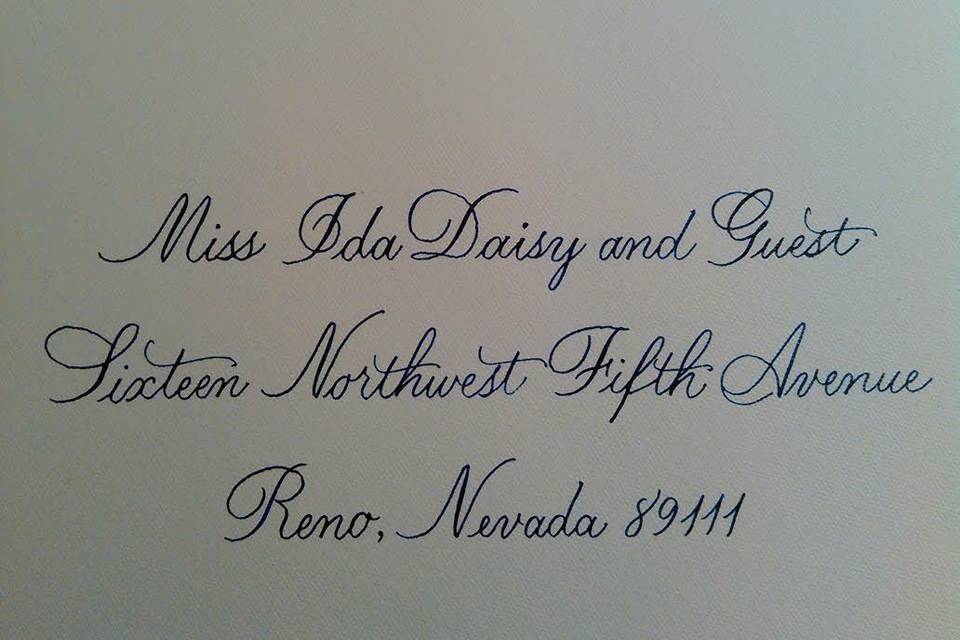 Miss Ida Daisy and Guest
Sixteen Northwest Fifth Avenue
Reno, Nevada 89111